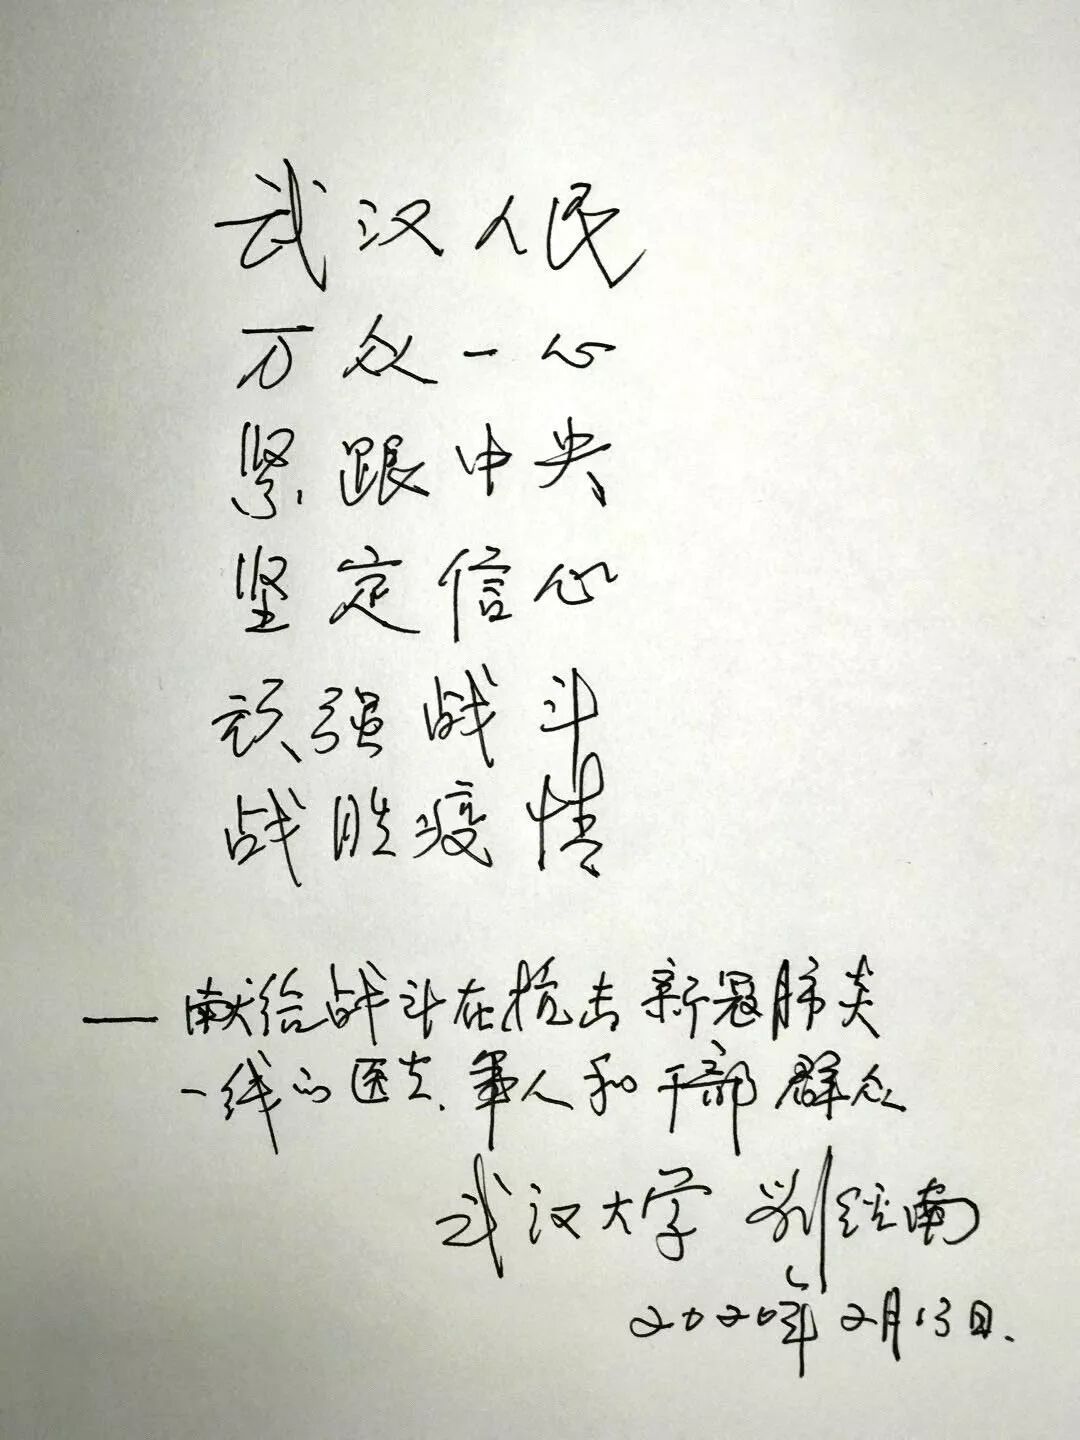 武汉人民
万众一心
紧跟中央
坚定信心
顽强战斗
战胜疫情
——献给战斗在抗击新冠肺炎
一线的医夫、军人和干部群众
武汉大学 刘经南
2020年2月13日.